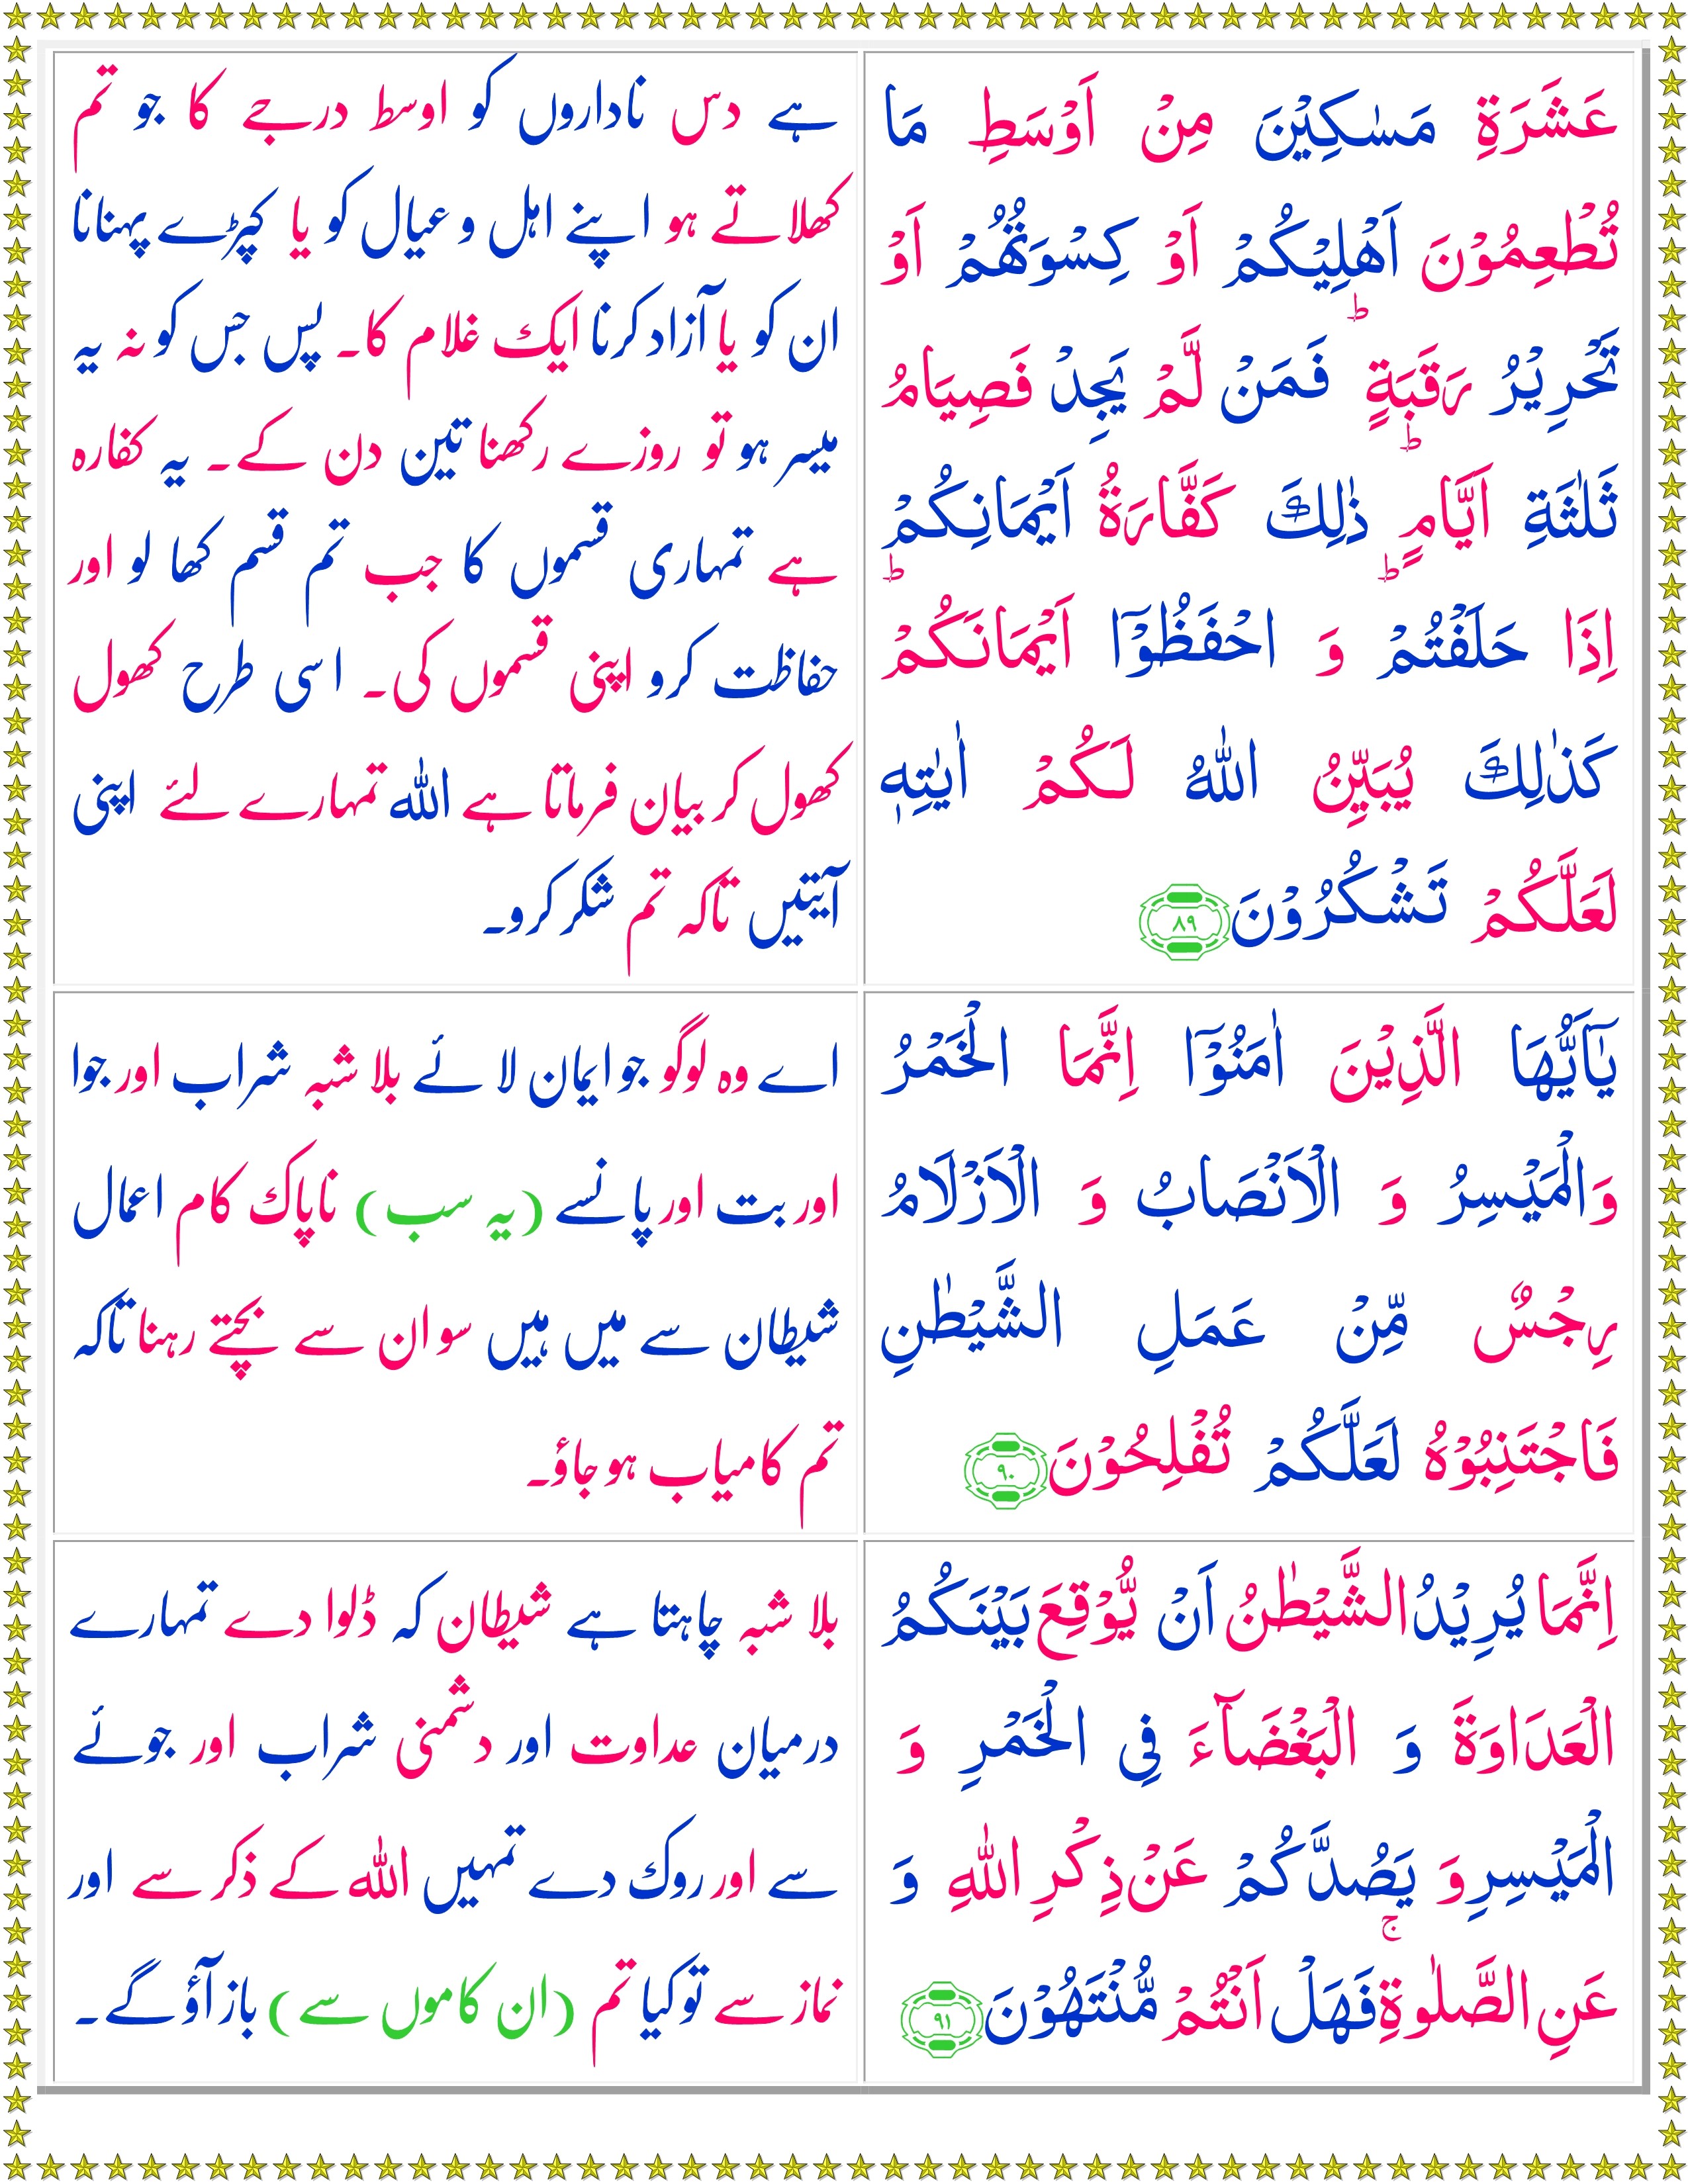 عَشَرَةِ مَسٰكِيْنَ مِنْ اَوْسَطِ مَا
تُطْعِمُوْنَ اَهْلِيْكُمْ اَوْ كِسْوَتُهُمْ اَوْ
تَحْرِيْرُ رَقَبَةٍ ؕ فَمَنْ لَّمْ يَجِدْ فَصِيَامُ
ثَلٰثَةِ اَيَّامٍ ؕ ذٰلِكَ كَفَّارَةُ اَيْمَانِكُمْ
اِذَا حَلَفْتُمْ ؕ وَ احْفَظُوْۤا اَيْمَانَكُمْ ؕ
كَذٰلِكَ يُبَيِّنُ اللّٰهُ لَكُمْ اٰيٰتِهٖ
لَعَلَّكُمْ تَشْكُرُوْنَ ۸۹
ہے دس ناداروں کو اوسط درجے کا جو تم
کھلاتے ہو اپنے اہل و عیال کو یا کپڑے پہنانا
ان کو یا آزاد کرنا ایک غلام کا۔ پس جس کو نہ یہ
میسر ہو تو روزے رکھنا تین دن کے۔ یہ کفارہ
ہے تمہاری قسموں کا جب تم قسم کھا لو اور
حفاظت کرو اپنی قسموں کی۔ اسی طرح کھول
کھول کر بیان فرماتا ہے اللہ تمہارے لئے اپنی
آیتیں تاکہ تم شکر کرو۔
يٰۤاَيُّهَا الَّذِيْنَ اٰمَنُوْۤا اِنَّمَا الْخَمْرُ
وَالْمَيْسِرُ وَ الْاَنْصَابُ وَ الْاَزْلَامُ
رِجْسٌ مِّنْ عَمَلِ الشَّيْطٰنِ
فَاجْتَنِبُوْهُ لَعَلَّكُمْ تُفْلِحُوْنَ ۹۰
اے وہ لوگو جو ایمان لائے بلا شبہ شراب اور جوا
اور بت اور پانسے (یہ سب) ناپاک کام اعمال
شیطان سے میں ہیں سو ان سے بچتے رہنا تاکہ
تم کامیاب ہو جاؤ۔
اِنَّمَا يُرِيْدُ الشَّيْطٰنُ اَنْ يُّوْقِعَ بَيْنَكُمُ
الْعَدَاوَةَ وَ الْبَغْضَآءَ فِي الْخَمْرِ وَ
الْمَيْسِرِ وَ يَصُدَّكُمْ عَنْ ذِكْرِ اللّٰهِ وَ
عَنِ الصَّلٰوةِ ۚ فَهَلْ اَنْتُمْ مُّنْتَهُوْنَ ۹۱
بلا شبہ چاہتا ہے شیطان کہ ڈلوا دے تمہارے
درمیان عداوت اور دشمنی شراب اور جوئے
سے اور روک دے تمہیں اللہ کے ذکر سے اور
نماز سے تو کیا تم (ان کاموں سے) باز آؤ گے۔